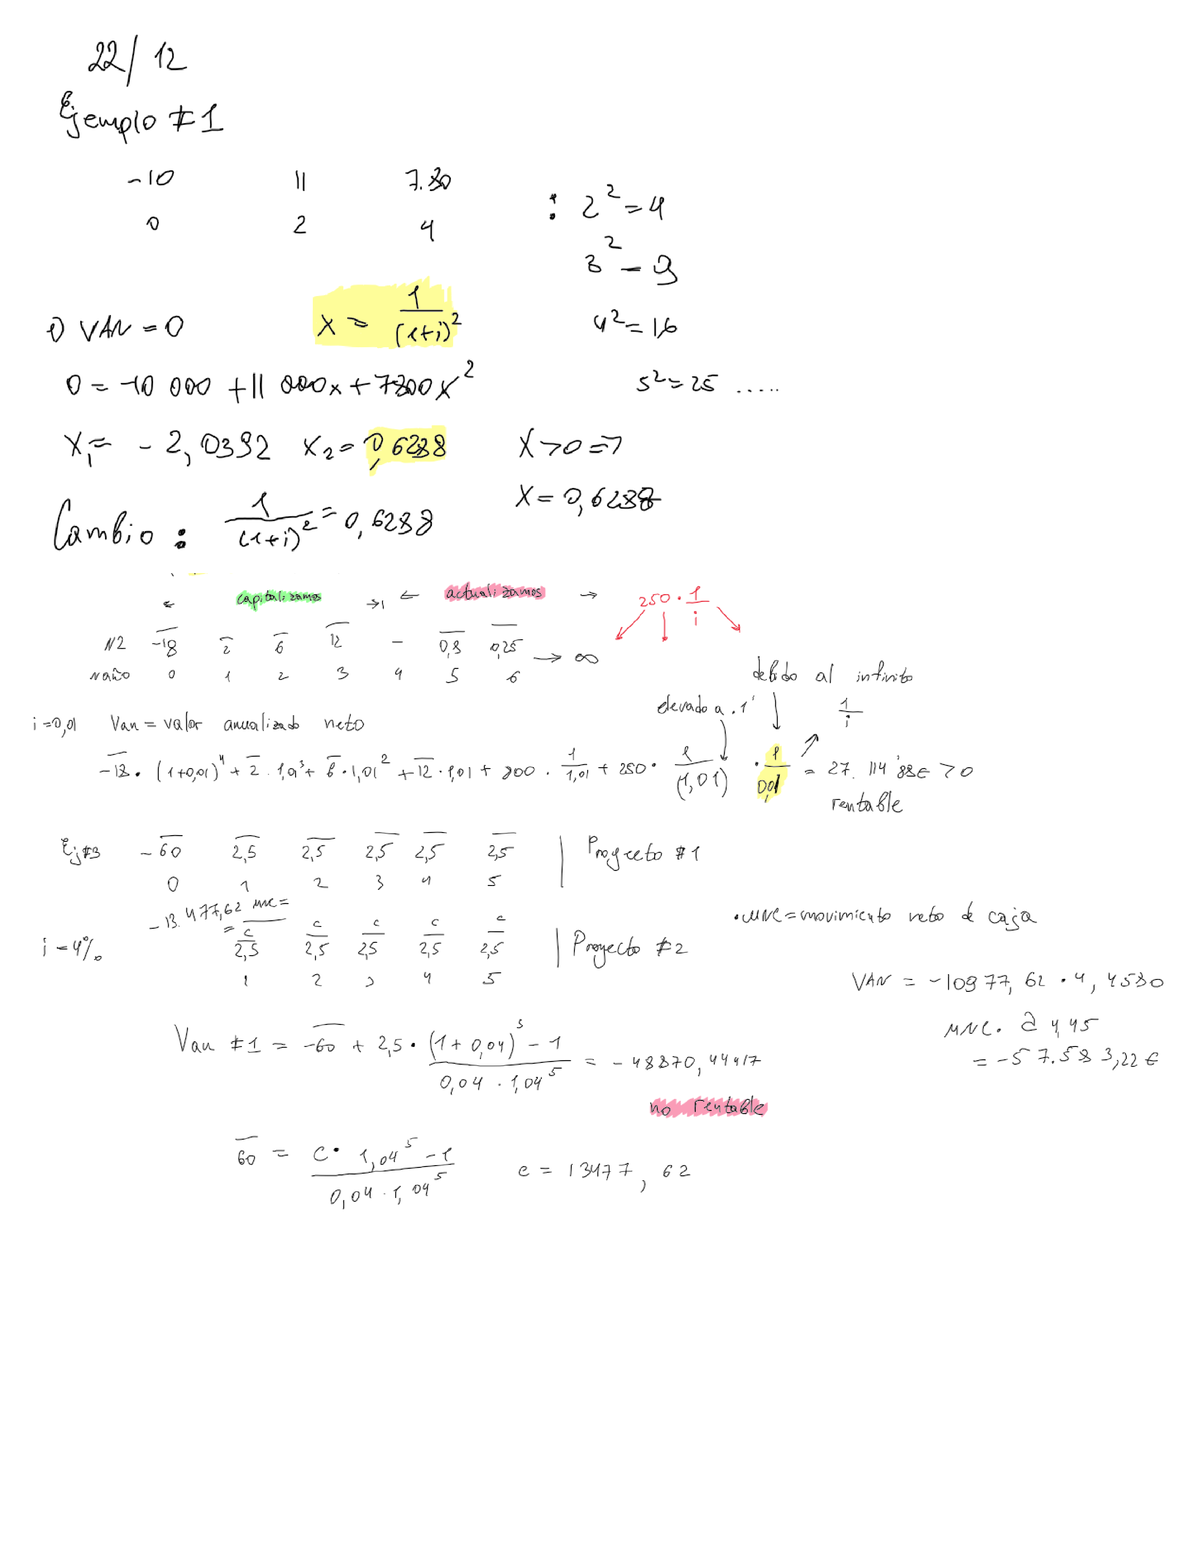 22/12
Ejemplo #1
-10 11 7.80
0 2 4
: 2² = 4
3² - 9
4² = 16
5² = 25 .....
① VAN = 0 X = 1/(1+i)²
0 = -10 000 + 11 000x + 7800x²
X₁ = -2,0392 X₂ = 0,6288 X > 0 =>
X = 0,6288
Cambio : 1/(1+i)² = 0,6288
← capitalizamos →| ← actualizamos → 250 · 1/i
N2 -18 2 6 12 - 0,8 0,25 → ∞
naño 0 1 2 3 4 5 6
debido al infinito
elevado a .1' 1/i
i = 0,01 Van = valor anualizado neto
-18 · (1+0,01)⁴ + 2 · 1,01³ + 6 · 1,01² + 12 · 1,01 + 800 · 1/1,01 + 250 · 1/(1,01) · 1/0,01 = 27.114'88€ > 0
rentable
Ej#3 -60 2,5 2,5 2,5 2,5 2,5 | Proyecto #1
0 1 2 3 4 5
-13.477,62 MNC =
· MNC = movimiento neto de caja
i = 4% = c/2,5 c/2,5 c/2,5 c/2,5 c/2,5 | Proyecto #2
1 2 3 4 5
VAN = -10977,62 · 4,4580
MNC. a 4,45
= -57.583,22 €
Van #1 = -60 + 2,5 · (1+0,04)⁵ - 1 / 0,04 · 1,04⁵ = -48870,44417
no rentable
60 = C · 1,04⁵ - 1 / 0,04 · 1,04⁵ c = 13477,62